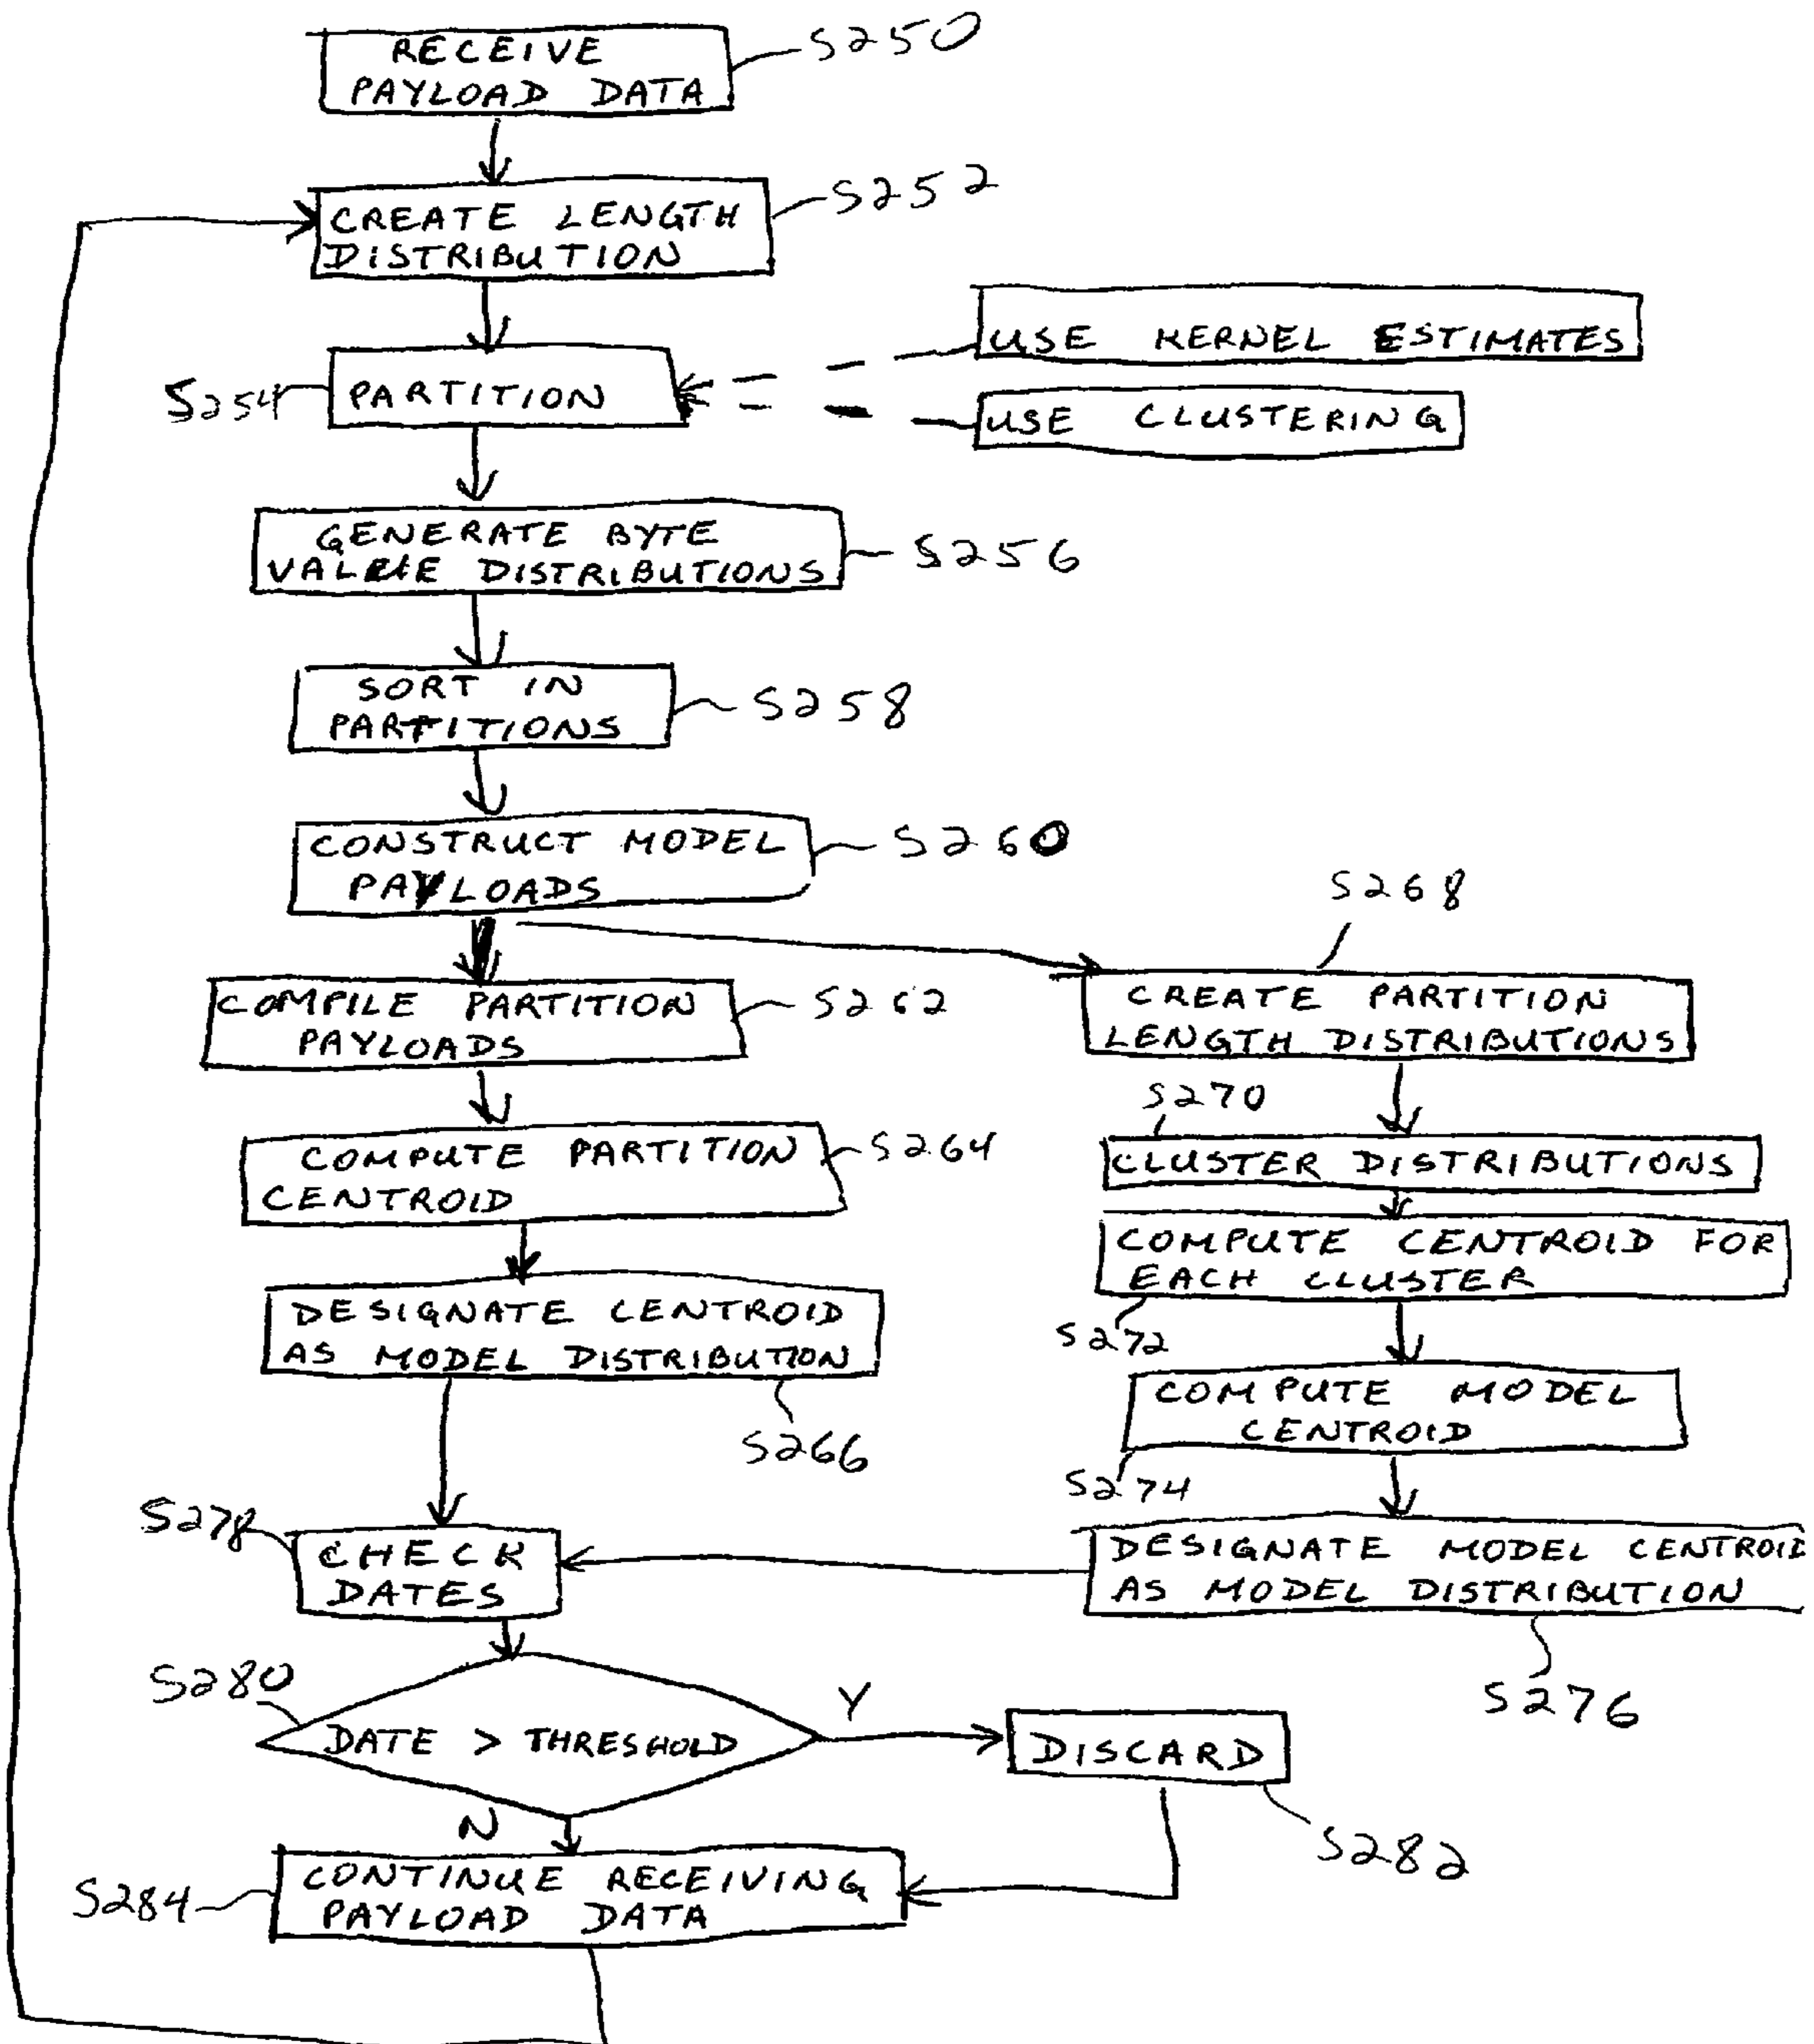 RECEIVE
PAYLOAD DATA
S250
CREATE LENGTH
DISTRIBUTION
S252
USE KERNEL ESTIMATES
S254
PARTITION
USE CLUSTERING
GENERATE BYTE
VALUE DISTRIBUTIONS
S256
SORT IN
PARTITIONS
S258
CONSTRUCT MODEL
PAYLOADS
S260
S268
COMPILE PARTITION
PAYLOADS
S262
CREATE PARTITION
LENGTH DISTRIBUTIONS
S270
COMPUTE PARTITION
CENTROID
S264
CLUSTER DISTRIBUTIONS
COMPUTE CENTROID FOR
EACH CLUSTER
S272
DESIGNATE CENTROID
AS MODEL DISTRIBUTION
S266
COMPUTE MODEL
CENTROID
S274
S278
CHECK
DATES
DESIGNATE MODEL CENTROID
AS MODEL DISTRIBUTION
S276
S280
DATE > THRESHOLD
Y
DISCARD
S282
N
S284
CONTINUE RECEIVING
PAYLOAD DATA